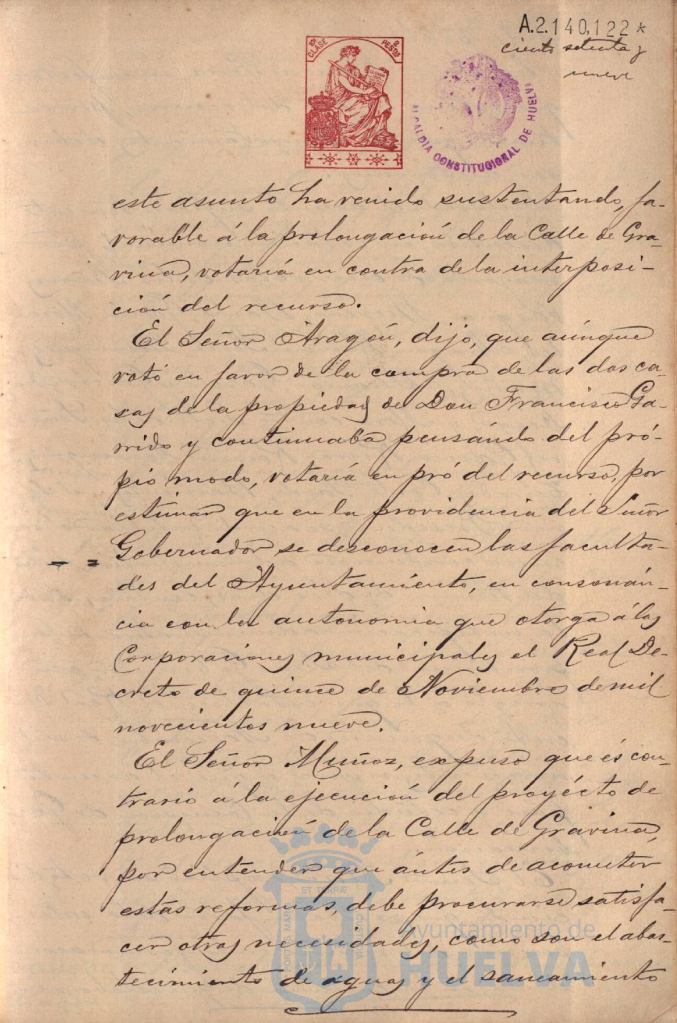 A.2.140,122*
ciento setenta y
nueve
10ª CLASE
PESETAS
ALCALDIA CONSTITUCIONAL DE HUELVA
este asunto ha venido sustentando, fa-
vorable á la prolongación de la Calle de Gra-
vina, votaría en contra de la interposi-
ción del recurso.
El Señor Aragón, dijo, que aúnque
votó en favor de la compra de las dos ca-
sas de la propiedad de Don Francisco Ga-
rrido y continuaba pensándo del pró-
pio modo, votaría en pró del recurso, por
estimar que en la providencia del Señor
Gobernador se desconocen las faculta-
des del Ayuntamiento, en consonán-
cia con la autonomia que otorga á las
Corporaciones municipales el Real De-
creto de quince de Noviembre de mil
novecientos nueve.
El Señor Muñoz, expuso que és con-
trario á la ejecución del proyécto de
prolongación de la Calle de Gravina,
por entender que ántes de acometer
estas reformas, debe procurarse satisfa-
cer otras necesidades, como son el abas-
tecimiento de aguas y el saneamiento
Ayuntamiento de
HUELVA